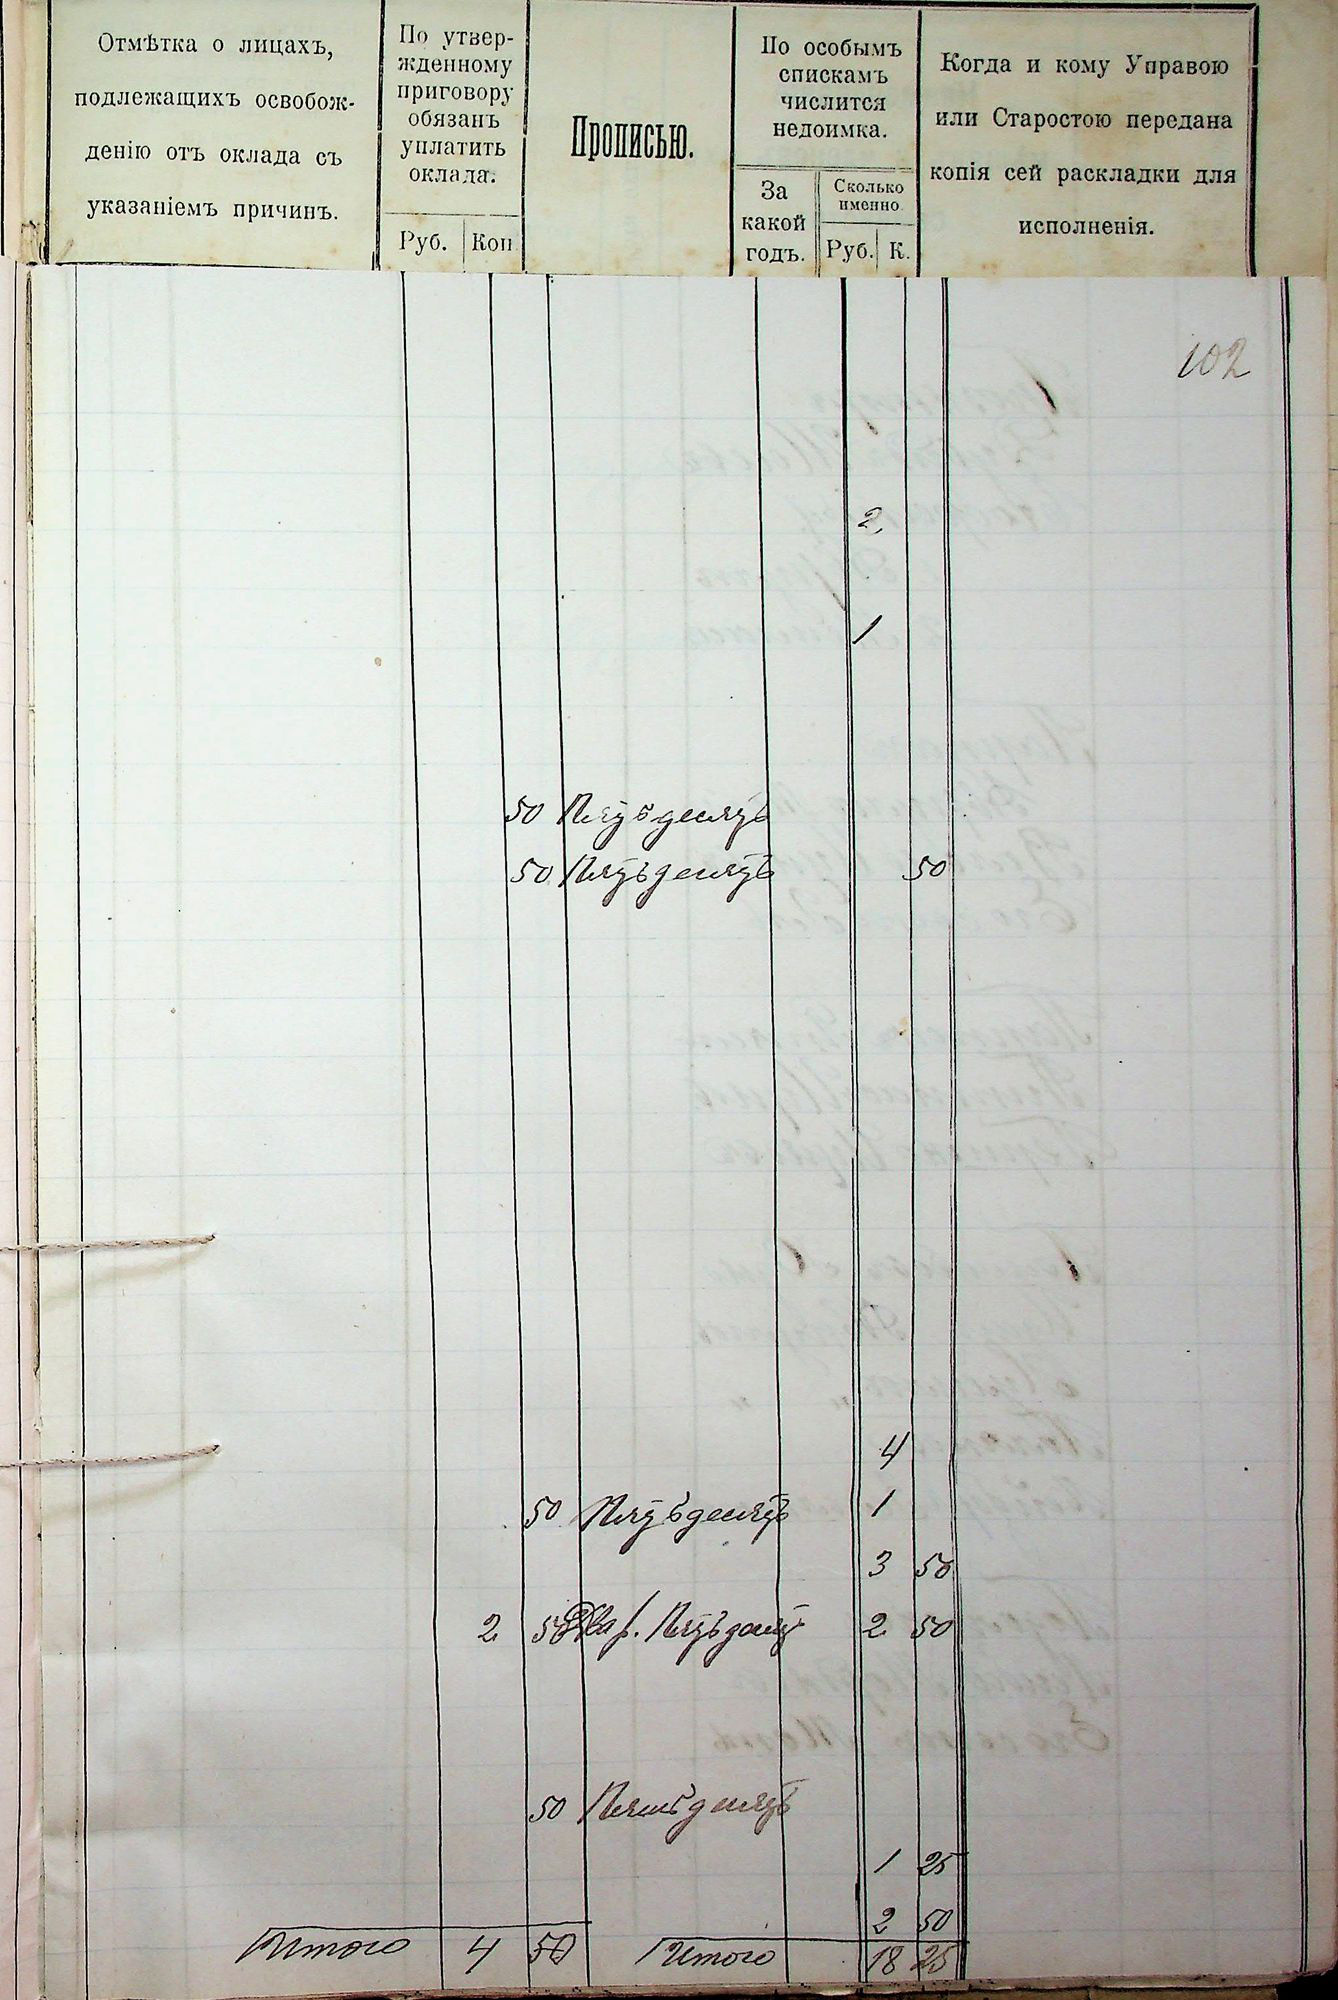 Отмѣтка о лицахъ,
подлежащихъ освобож-
денію отъ оклада съ
указаніемъ причинъ.
По утвер-
жденному
приговору
обязанъ
уплатить
оклада.
Руб. Коп
Прописью.
По особымъ
спискамъ
числится
недоимка.
За
какой
годъ.
Сколько
именно
Руб. К.
Когда и кому Управою
или Старостою передана
копія сей раскладки для
исполненія.
102
2
1
50 Пятьдесятъ
50 Пятьдесятъ 50
4
50 Пятьдесятъ 1
3 50
2 50 Два р. Пятьдесят 2 50
50 Пятьдесятъ
1 25
2 50
Итого 4 50 Итого 18 25